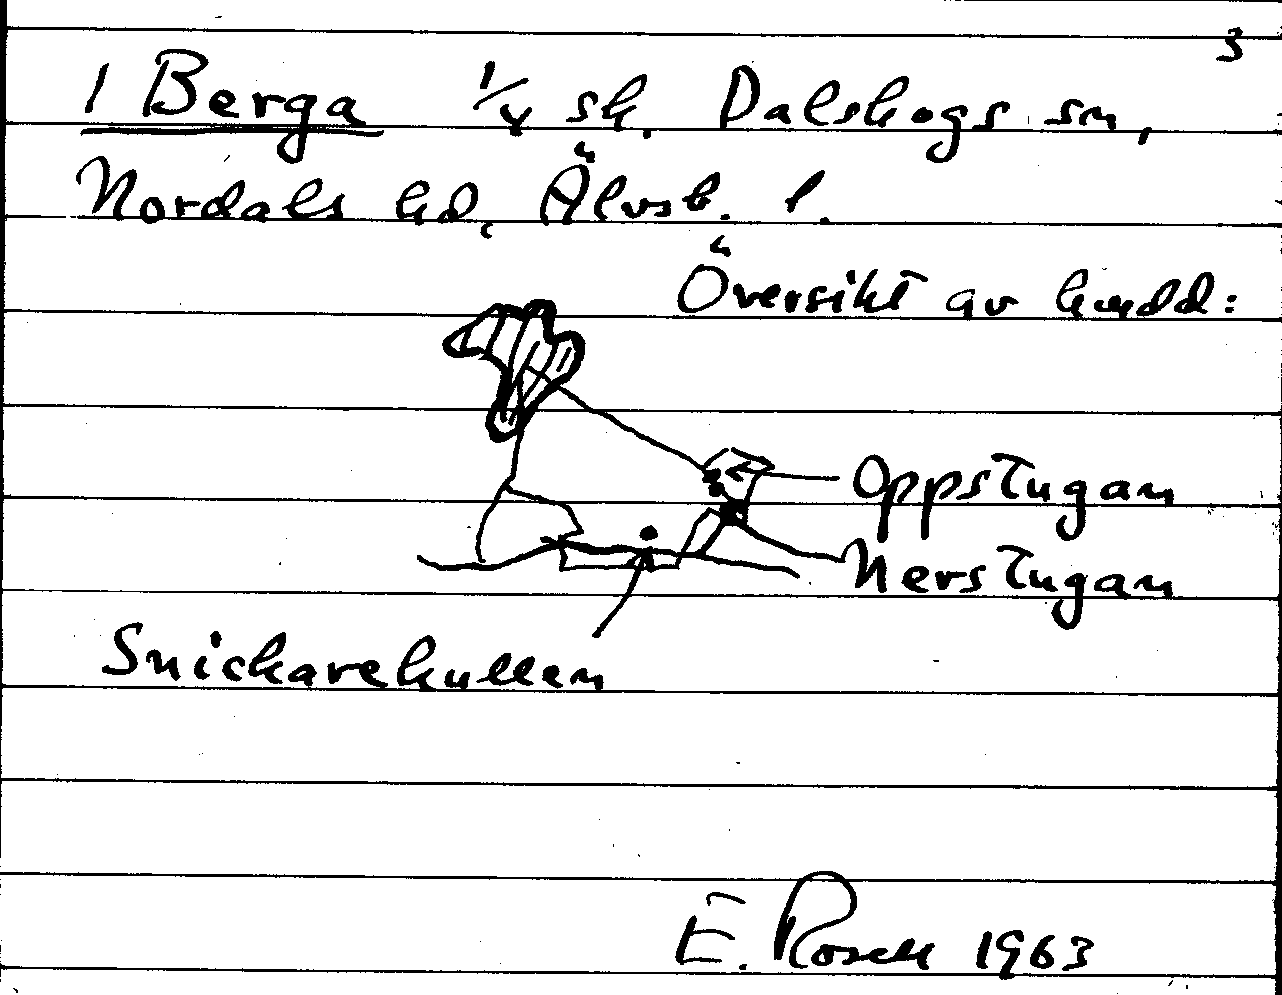 3
1 Berga 1/4 sk. Dalskogs sn,
Nordals hd, Älvsb. l.
Översikt av
Oppstugan
Nerstugan
Snickarekullen
E. Rosell 1963